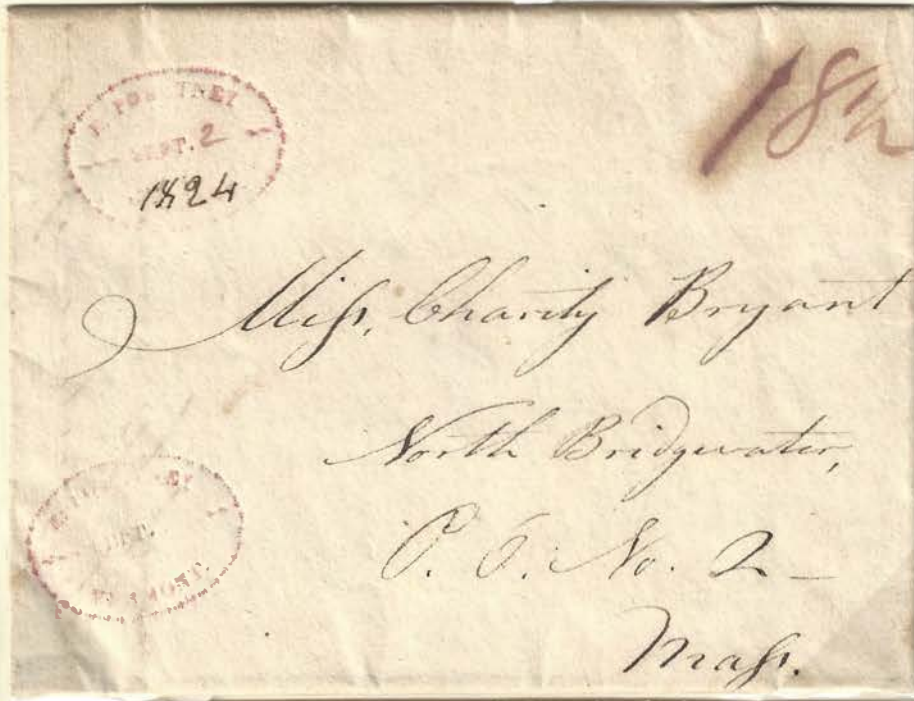 E. POULTNEY
SEPT. 2
1824
18½
Miſs, Charity Bryant
North Bridgewater,
P. O. No. 2 —
Maſs.
E. POULTNEY
SEPT.
VERMONT.